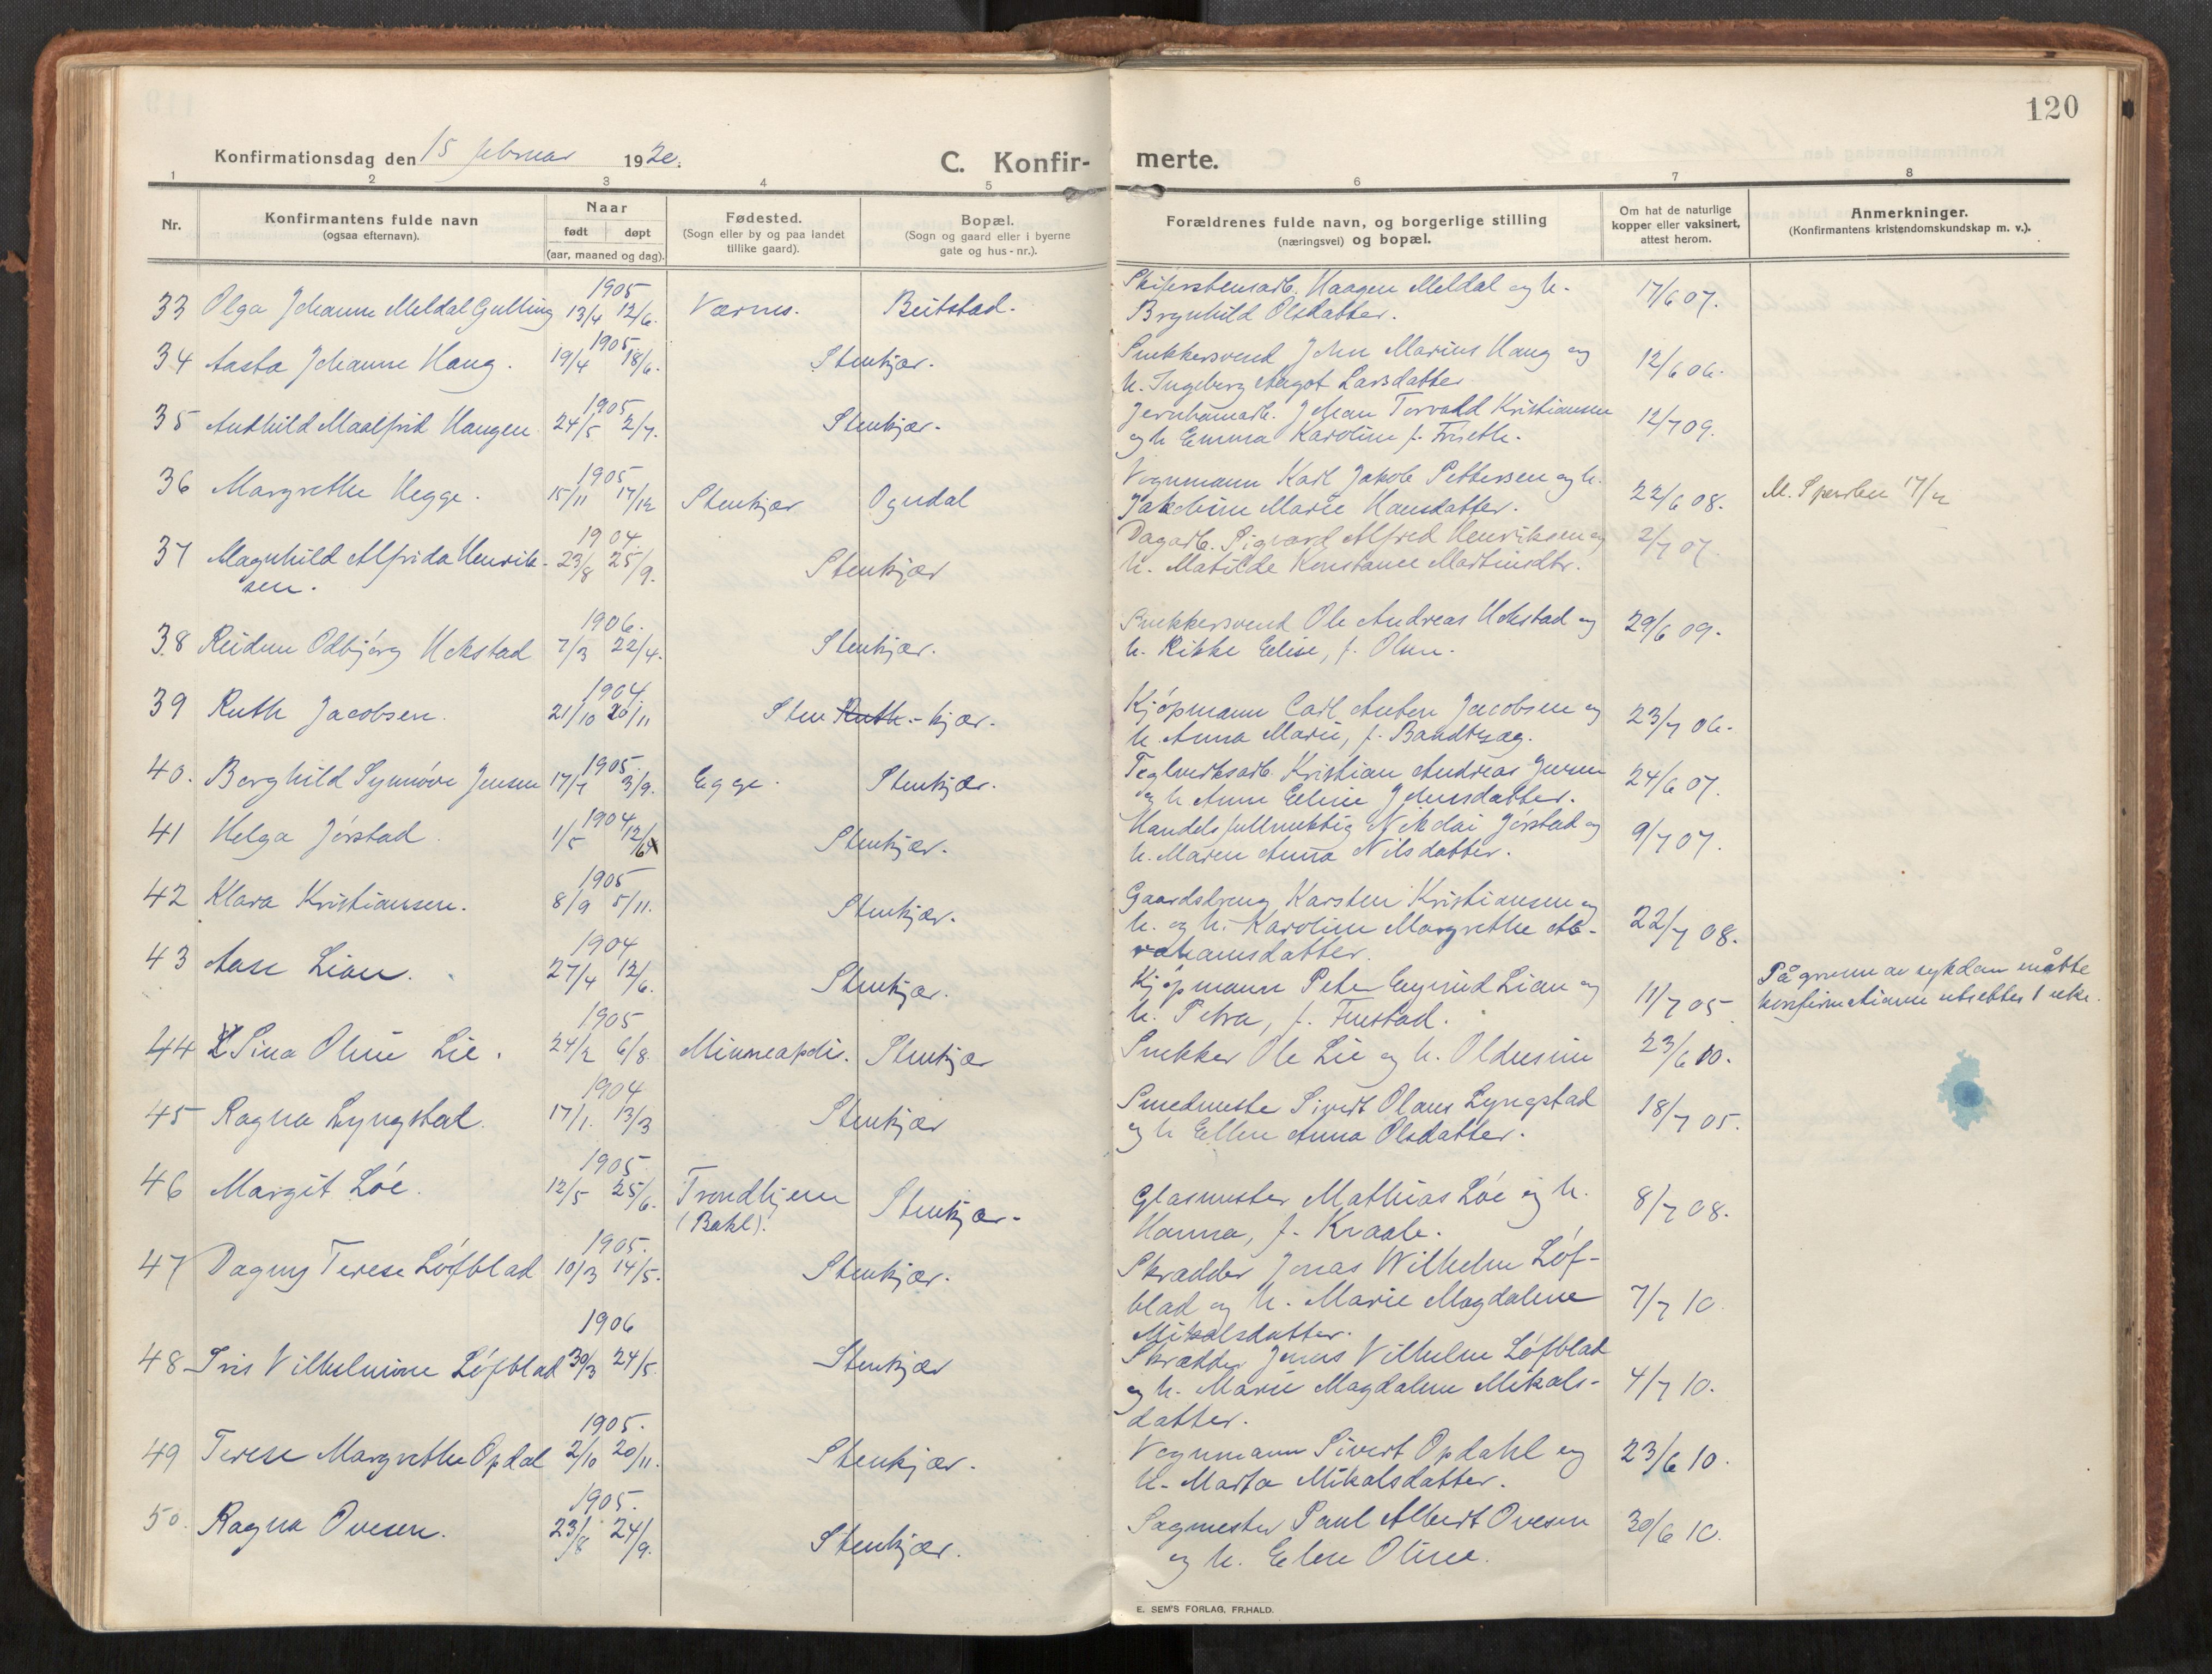 120
Konfirmationsdag den 15 februar 1920.
C. Konfir-
merte.
1 2 3 4 5 6 7 8
Nr.
Konfirmantens fulde navn
(ogsaa efternavn).
Naar
født døpt
(aar, maaned og dag).
Fødested.
(Sogn eller by og paa landet
tillike gaard).
Bopæl.
(Sogn og gaard eller i byerne
gate og hus-nr.).
Forældrenes fulde navn, og borgerlige stilling
(næringsvei) og bopæl.
Om hat de naturlige
kopper eller vaksinert,
attest herom.
Anmerkninger.
(Konfirmantens kristendomskundskap m. v.).
33 Olga Johanne Meldal Gulling 1905 13/4 12/6. Værnes. Beitstad.
Haagen Meldal og h.
Brynhild Olsdatter.
17/6 07.
34 Aasta Johanne Haug. 1905 19/4 18/6. Stenkjær.
Snekkersvend John Marius Haug og
h. Ingeborg Aagot Larsdatter
12/6 06.
35 Audhild Maalfrid Haugen 1905 24/5 2/7. Stenkjær.
Jernbanearb. Johan Torvald Kristiansen
og h Emma Karoline f. Friseth.
12/7 09.
36 Margrethe Hegge. 1905 15/11 17/12 Stenkjær Ogndal
Vognmann Karl Jakob Pettersen og h.
Jakobine Marie Hansdatter.
22/6 08.
37 Magnhild Alfrida Henrik-
sen. 1904. 23/8 25/9. Stenkjær
Dagarb. Sigvard Alfred Henriksen og
h. Matilde Konstance Martinsdtr.
2/7 07.
38 Reidun Odbjørg Hokstad 1906. 7/3 22/4. Stenkjær.
Snekkersvend Ole Andreas Hokstad og
h. Rikke Elise, f. Olsen.
29/6 09.
39 Ruth Jacobsen. 1904 21/10 20/11 Sten Ruth.- kjær.
Kjøpmann Carl Anton Jacobsen og
h. Anna Marie, f.
23/7 06.
40. Borghild Synnøve Jensen 1905. 17/7 3/9. Egge. Stenkjær.
Teglverksarb. Kristian Andreas Jensen
og h Anne Eline Johnsdatter.
24/6 07.
41 Helga Jørstad. 1904 1/5 12/6 Stenkjær.
Handelsfullmektig Nikolai Jørstad og
h. Maren Anna Nilsdatter.
9/7 07.
42 Klara Kristiansen. 1905 8/9 5/11. Stenkjær.
Gaardsdreng Karsten Kristiansen og
h. og h. Karoline Margrethe Ab-
rahamsdatter.
22/7 08.
43 Aase Lian. 1904 27/4 12/6. Stenkjær.
Kjøpmann Peter Lian og
h. Petra, f. Finstad.
11/7 05
På grunn av sykdom måtte
konfirmationen utsettes 1 uke.
44 Sina Oline Lie. 1905 24/2 6/8. Minneapolis. Stenkjær
Snekker Ole Lie og h. Oldusine
23/6 10.
45 Ragna Lyngstad. 1904 17/1. 13/3 Stenkjær
Smedmester Sivert Olaus Lyngstad
og h Ellen Anna Olsdatter.
18/7 05.
46 Margit Løe. 1905 12/5 25/6. Trondhjem
(Bakl). Stenkjær.
Glasmester Mathias Løe og h.
Hanna, f.
8/7 08.
47 Dagny Terese Løfblad 1905. 10/3 14/5. Stenkjær.
Skrædder Jonas Wilhelm Løf-
blad og h. Marie Magdalene
Mikalsdatter.
7/7 10.
48 Iris Vilhelmine Løfblad 1906 30/3 24/5. Stenkjær
Skrædder Jonas Vilhelm Løfblad
og h. Marie Magdalene Mikals-
datter.
4/7 10.
49 Terese Margrethe Opdal 1905. 2/10 20/11. Stenkjær.
Vognmann Sivert Opdahl og
h. Marta Mikalsdatter.
23/6 10.
50. Ragna Ovesen. 1905. 23/8 24/9. Stenkjær.
Sagmester Paul Albert Ovesen
og h. Elen Oline.
30/6 10.
E. SEM'S FORLAG, FR.HALD.